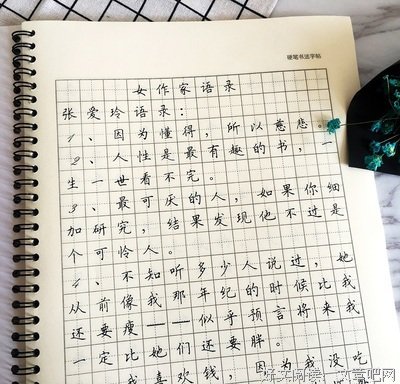 硬笔书法字帖
女作家语录
张爱玲语录：
1、因为懂得，所以慈悲。
2、人性是最有趣的书，一
生一世看不完。
3、最可厌的人，如果你细
加研究，结果发现他不过是
个可怜人。
4、不知听多少人说过，她
从前像我那年纪的时候比我
还要瘦——似乎预言将来我
一定比她们还要胖。
我喜欢钱，因为我没吃
文章吧网